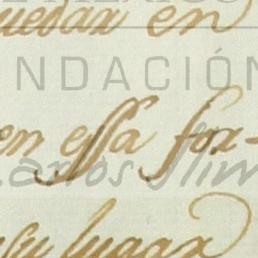 quedar en
FUNDACIÓN
en essa for-
Carlos Slim
su lugar